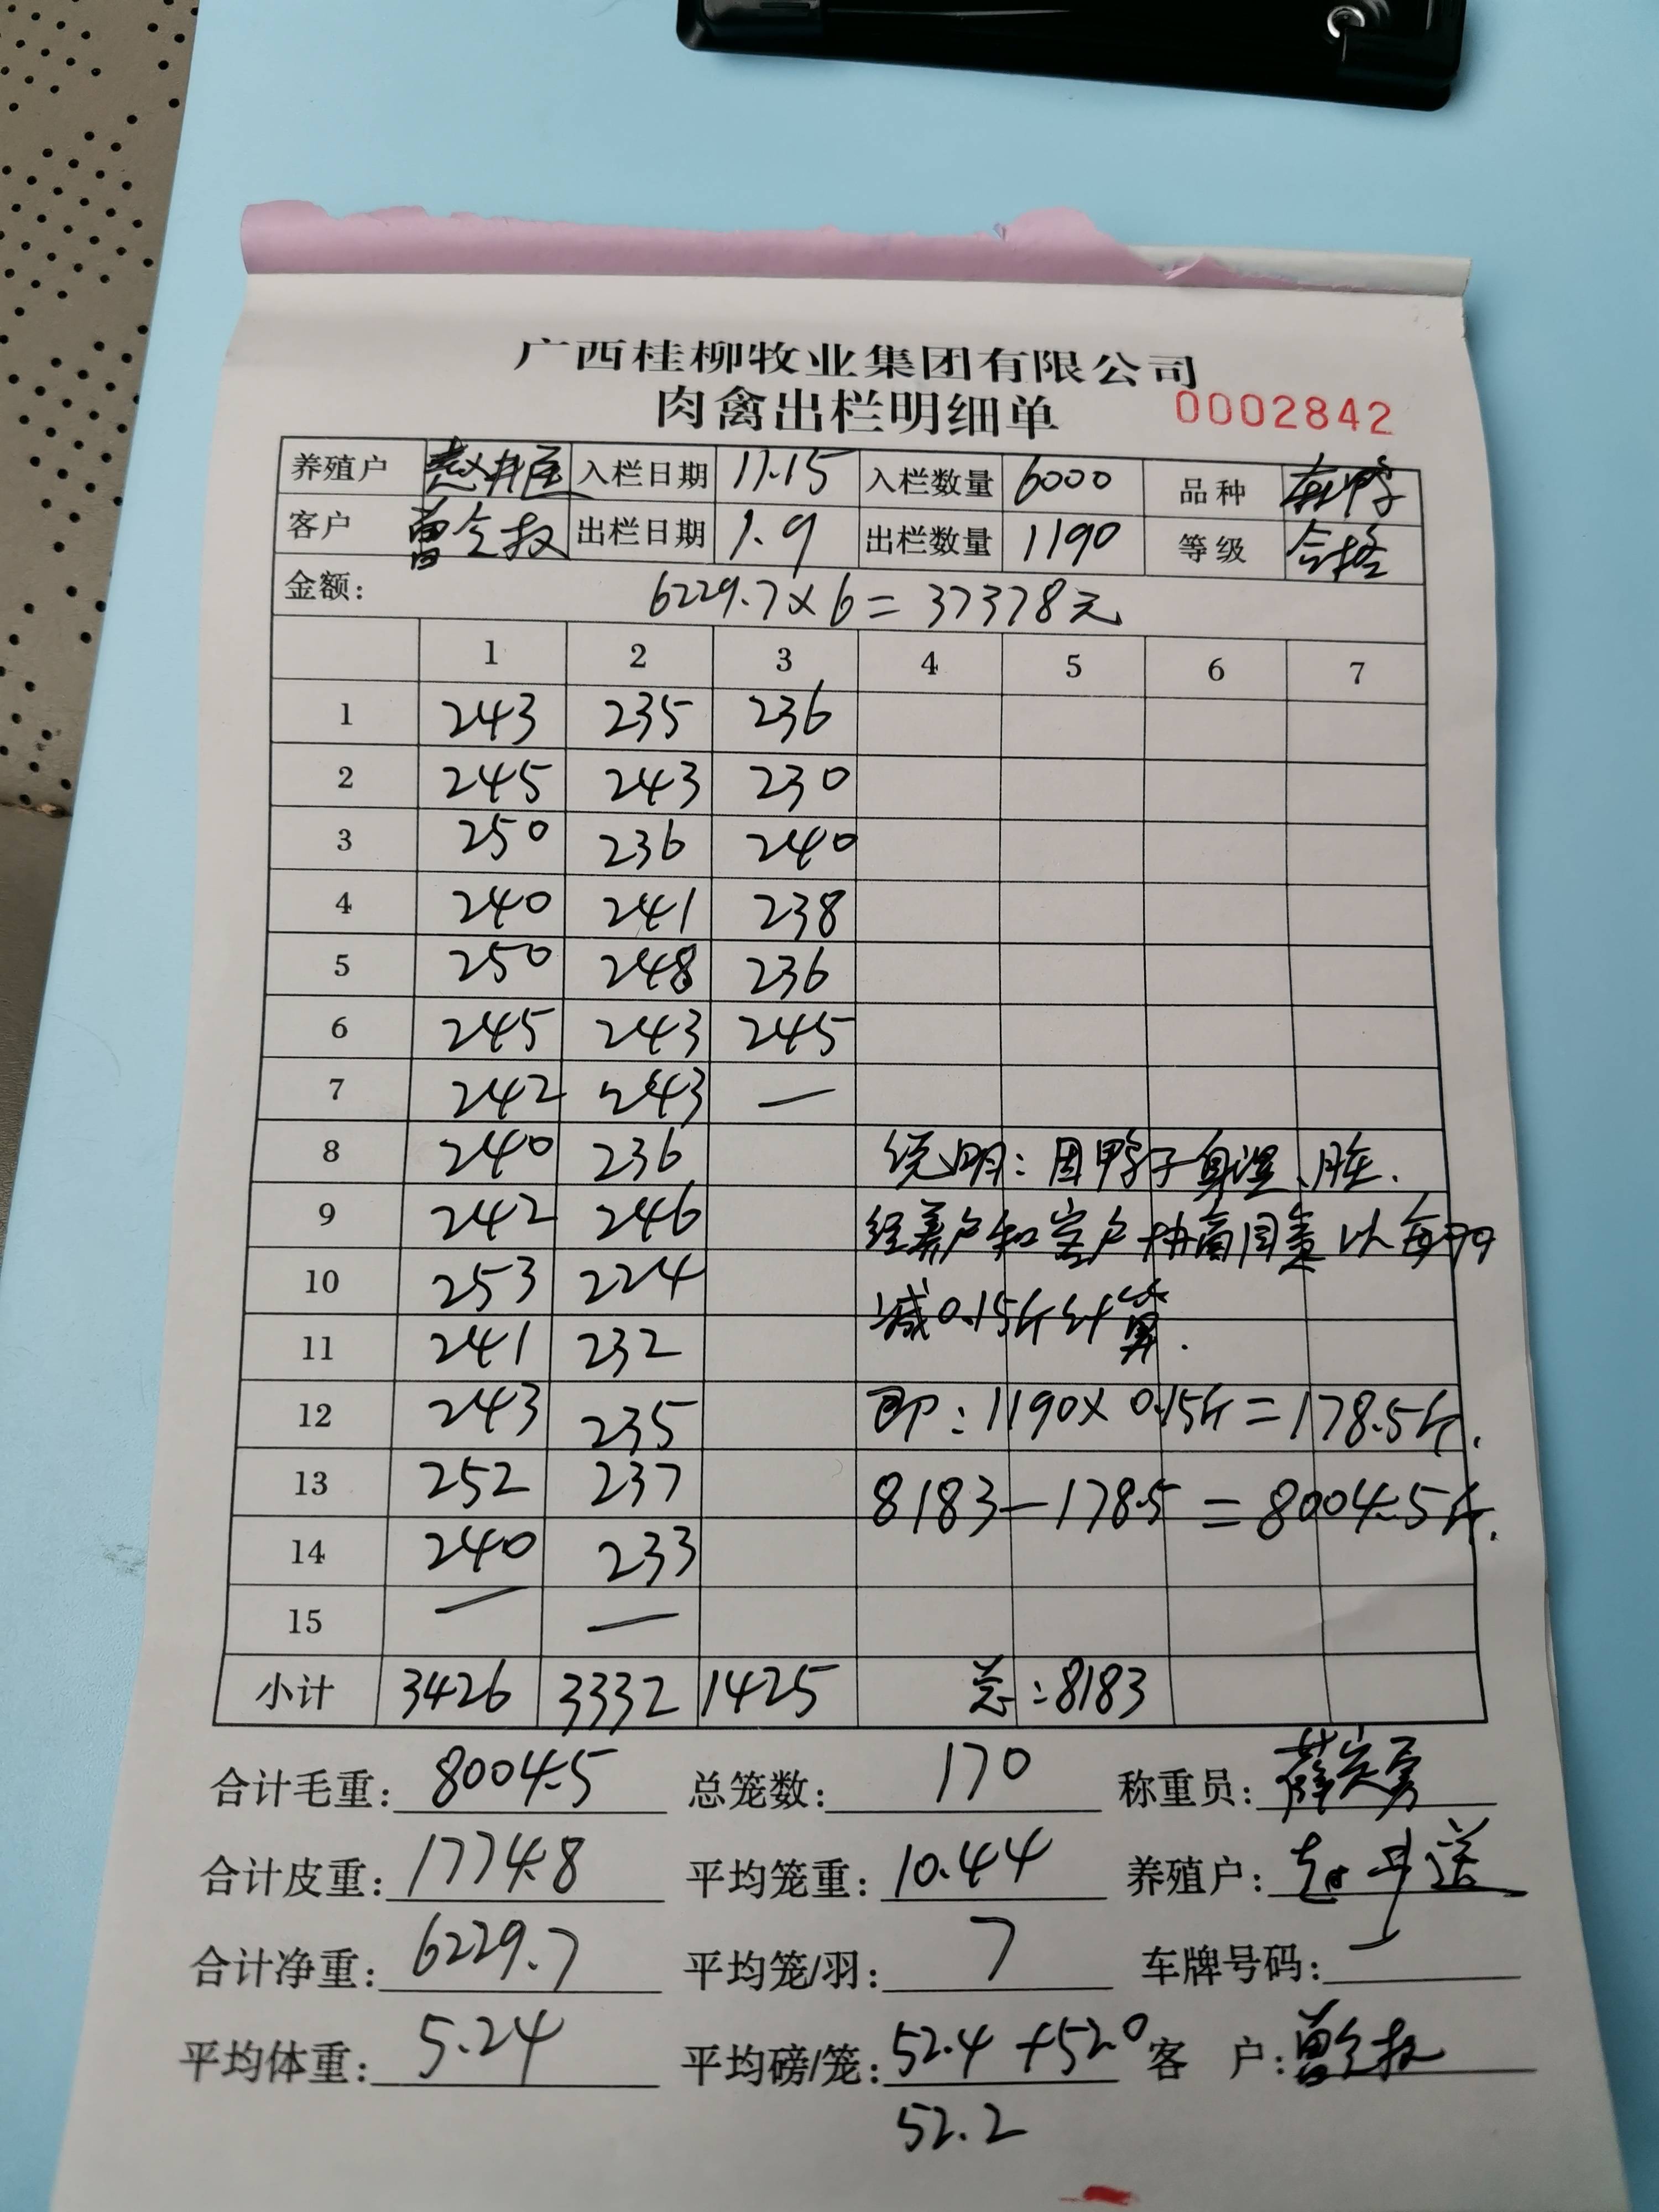 广西桂柳牧业集团有限公司
肉禽出栏明细单 0002842
养殖户 入栏日期 11.15 入栏数量 6000 品种
客户 出栏日期 1.9 出栏数量 1190 等级 合格
金额: 6229.7×6=37378元
1 2 3 4 5 6 7
1 243 235 236
2 245 243 230
3 250 236 240
4 240 241 238
5 250 248 236
6 245 243 245
7 242 243 —
8 240 236 说明:因鸭子身湿、脏.
9 242 246 经养户和客户协商同意以每羽
10 253 224 减0.15斤计算.
11 241 232
12 243 235 即:1190×0.15斤=178.5斤.
13 252 237 8183—178.5=8004.5斤.
14 240 233
15 — —
小计 3426 3332 1425 总:8183
合计毛重: 8004.5 总笼数: 170 称重员:
合计皮重: 1774.8 平均笼重: 10.44 养殖户:
合计净重: 6229.7 平均笼/羽: 7 车牌号码:
平均体重: 5.24 平均磅/笼: 52.4+52.0 客 户:
52.2